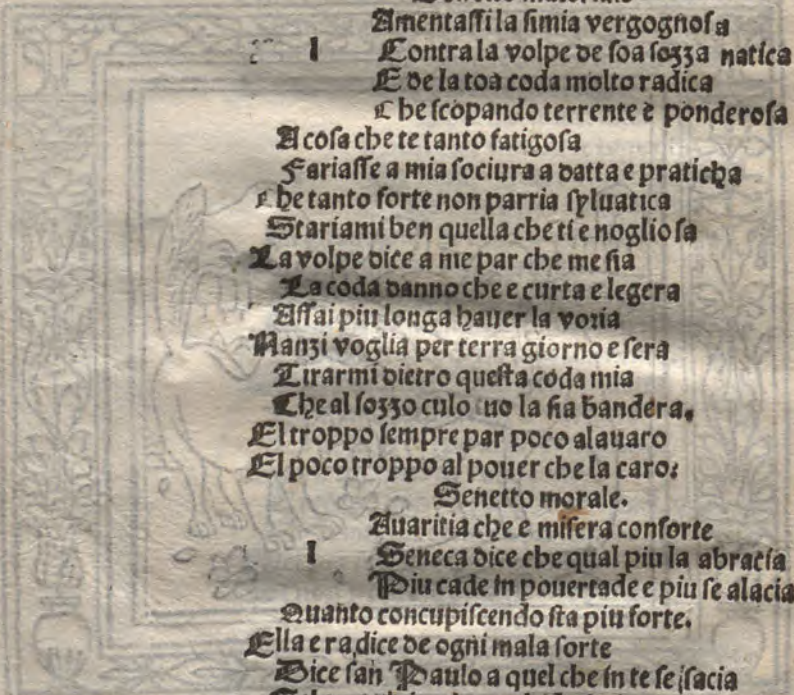 Amentassi la simia vergognosa
l Contra la volpe de soa sozza natica
E de la toa coda molto radica
Che scopando terrente e ponderosa
A cosa che te tanto fatigosa
Fariasse a mia sociura adatta e praticha
Che tanto forte non parria syluatica
Stariami ben quella che ti e nogliosa
La volpe dice a me par che me sia
La coda danno che e curta e legera
Assai piu longa hauer la voria
Nanzi voglia per terra giorno e sera
Tirarmi dietro questa coda mia
Che al sozzo culo tuo la sia bandera.
El troppo sempre par poco alauaro
El poco troppo al pouer che la caro:
Senetto morale.
Auaritia che e misera consorte
l Seneca dice che qual piu la abracia
Piu cade in pouertade e piu se alacia
Quanto concupiscendo sta piu forte.
Ella e radice de ogni mala sorte
Dice san Paulo a quel che in te se sacia